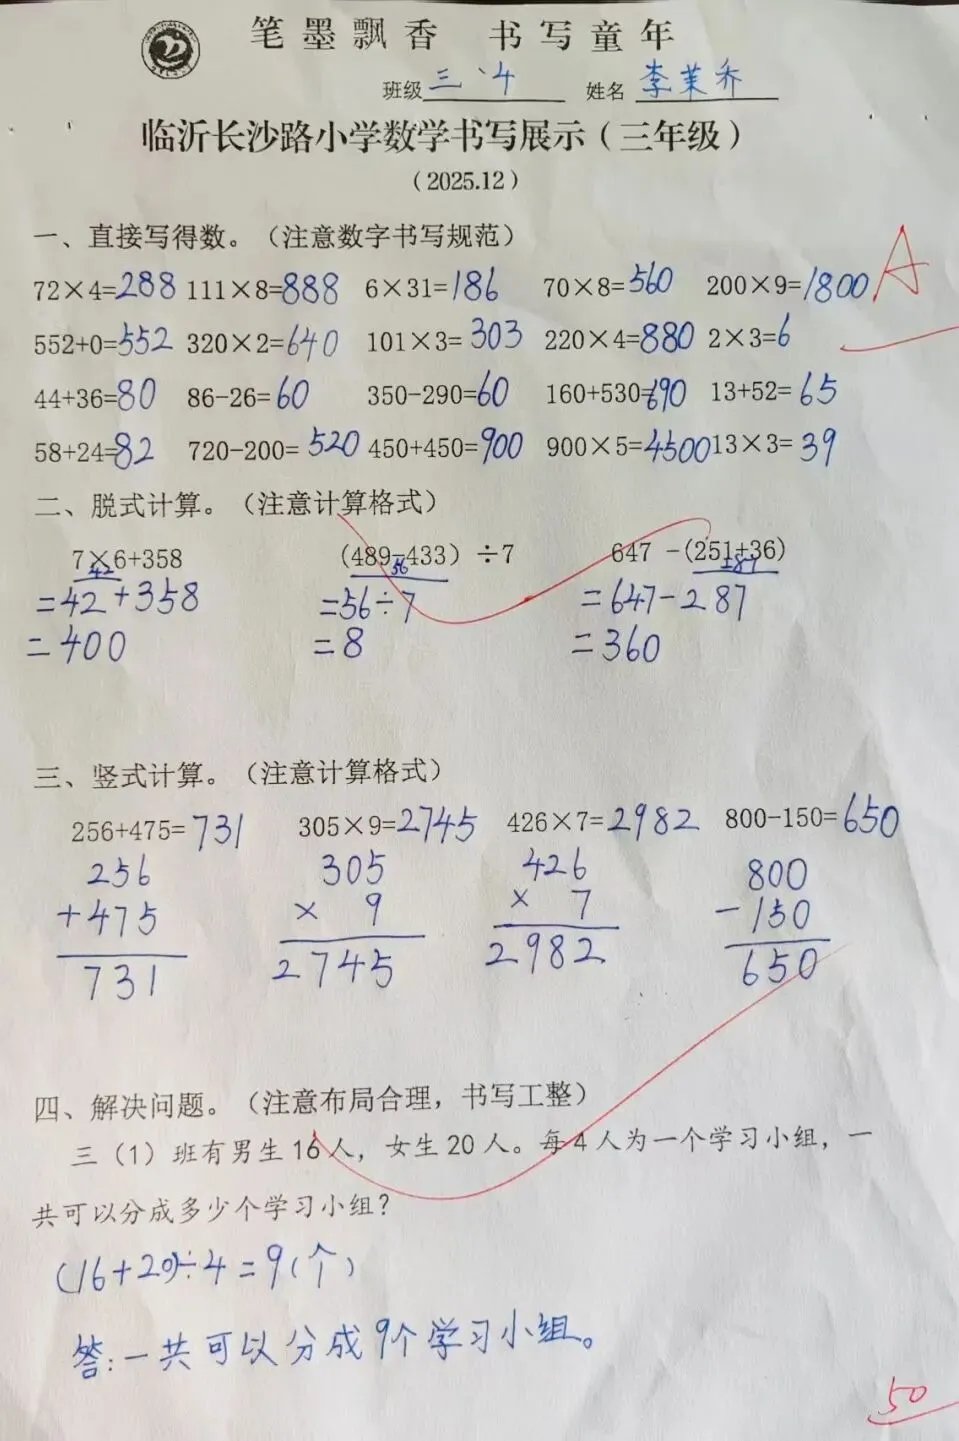 笔墨飘香 书写童年
班级 三、4 姓名 李茉乔
临沂长沙路小学数学书写展示（三年级）
（2025.12）
一、直接写得数。（注意数字书写规范）
72×4=288 111×8=888 6×31=186 70×8=560 200×9=1800
A
552+0=552 320×2=640 101×3=303 220×4=880 2×3=6
44+36=80 86-26=60 350-290=60 160+530=690 13+52=65
58+24=82 720-200=520 450+450=900 900×5=4500 13×3=39
二、脱式计算。（注意计算格式）
7×6+358 （489-433）÷7 647 -(251+36)
42 56
=42+358 =56÷7 =647-287
=400 =8 =360
三、竖式计算。（注意计算格式）
256+475=731 305×9=2745 426×7=2982 800-150=650
256 305 426 800
+475 × 9 × 7 -150
731 2745 2982 650
四、解决问题。（注意布局合理，书写工整）
三（1）班有男生16人，女生20人。每4人为一个学习小组，一
共可以分成多少个学习小组？
(16+20)÷4=9(个)
答:一共可以分成9个学习小组。
50